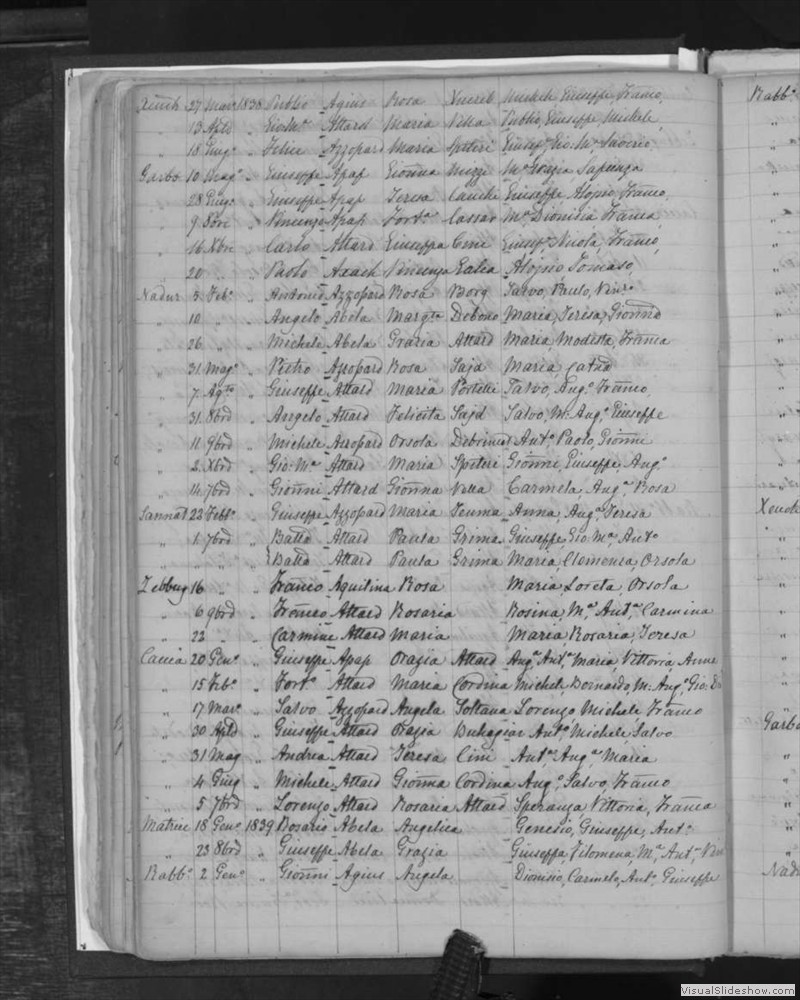 Xeuch 27 Mar. 1838 Publio Agius Rosa Xuereb Michele, Giuseppe, Franco,
" 13 Aple " Gio.Ma. Attard Maria Vella Publio, Giuseppe, Michele,
" 18 Giug.o " Felice Azzopard Maria Spiteri Giusep. Gio. Ma. Saverio
Garbo 10 Mag.o " Giuseppe Apap Gionna Muzzi Ma. Grazia Sapienza
" 28 Giug.o " Giuseppe Apap Teresa Cauchi Giuseppe Aloisio, Franco,
" 9 8bre " Vincenzo Apap Fort.a Cassar Ma. Dionisia Franca,
" 16 Xbre " Carlo Attard Giuseppa Cini Giusep. Nicola, Franco,
" 20 " " Paolo Axach Vincenza Galea Aloisio, Tomaso,
Nadur 5 Feb.o " Antonio Azzopard Rosa Borg Salvo, Paulo, Vinc.o
" 10 " " Angelo Abela Marg.ta Debono Maria, Teresa, Gionna
" 26 " " Michele Abela Grazia Attard Maria Modesta, Franca
" 31 Mag.o " Pietro Azzopard Rosa Said Maria,
" 7 Ag.to " Giuseppe Attard Maria Portelli Salvo, Aug.o Franco,
" 31 8bre " Angelo Attard Felicita Said Salvo, M. Aug.o Giuseppe
" 11 9bre " Michele Azzopard Orsola Ant.o Paolo, Gionni
" 2 Xbre " Gio: Ma. Attard Maria Spiteri Gionni, Giuseppe, Aug.o
" 14 7bre " Gionni Attard Gionna Vella Carmela, Aug.a Rosa
Sannat 22 Feb.o " Giuseppe Azzopard Maria Seuma Anna, Aug.a Teresa
" 1 7bre " Batta Attard Paula Grima Giuseppe Gio Ma. Ant.o
" " " " Batta Attard Paula Grima Maria, Clemenza, Orsola
Zebbug 16 " " Franco Aquilina Rosa Maria Loreta, Orsola
" 6 9bre " Franco Attard Rosaria Rosina, Ma. Ant.a Carmina
" 22 " " Carmine Attard Maria Maria Rosaria, Teresa
Caccia 20 Gen.o " Giuseppe Apap Grazia Attard Aug.a Ant.a Maria, Vittoria, Anna
" 15 Feb.o " Fort.o Attard Maria Cordina Michele Bernardo, M. Aug.o Gio:
" 17 Mar.o " Salvo Azzopard Angela Soltana Lorenzo Michele Franco
" 30 Aple " Giuseppe Attard Grazia Buhagiar Ant.o Michele, Salvo
" 31 Mag " Andrea Attard Teresa Cini Ant.a Aug.a Maria
" 4 Giug " Michele Attard Gionna Cordina Aug.o Salvo, Franco
" 5 7bre " Lorenzo Attard Rosaria Attard Speranza Vittoria, Franca
Matrice 18 Gen.o 1839 Rosario Abela Angelica Genesio, Giuseppe, Ant.o
" 23 8bre " Giuseppe Abela Grazia Giuseppa, Filomena, Ma. Ant.a
Rabb.o 2 Gen.o " Gionni Agius Angela Dionisio, Carmelo, Ant.o Giuseppe
Rabb.o
Garbo
VisualSlideshow.com